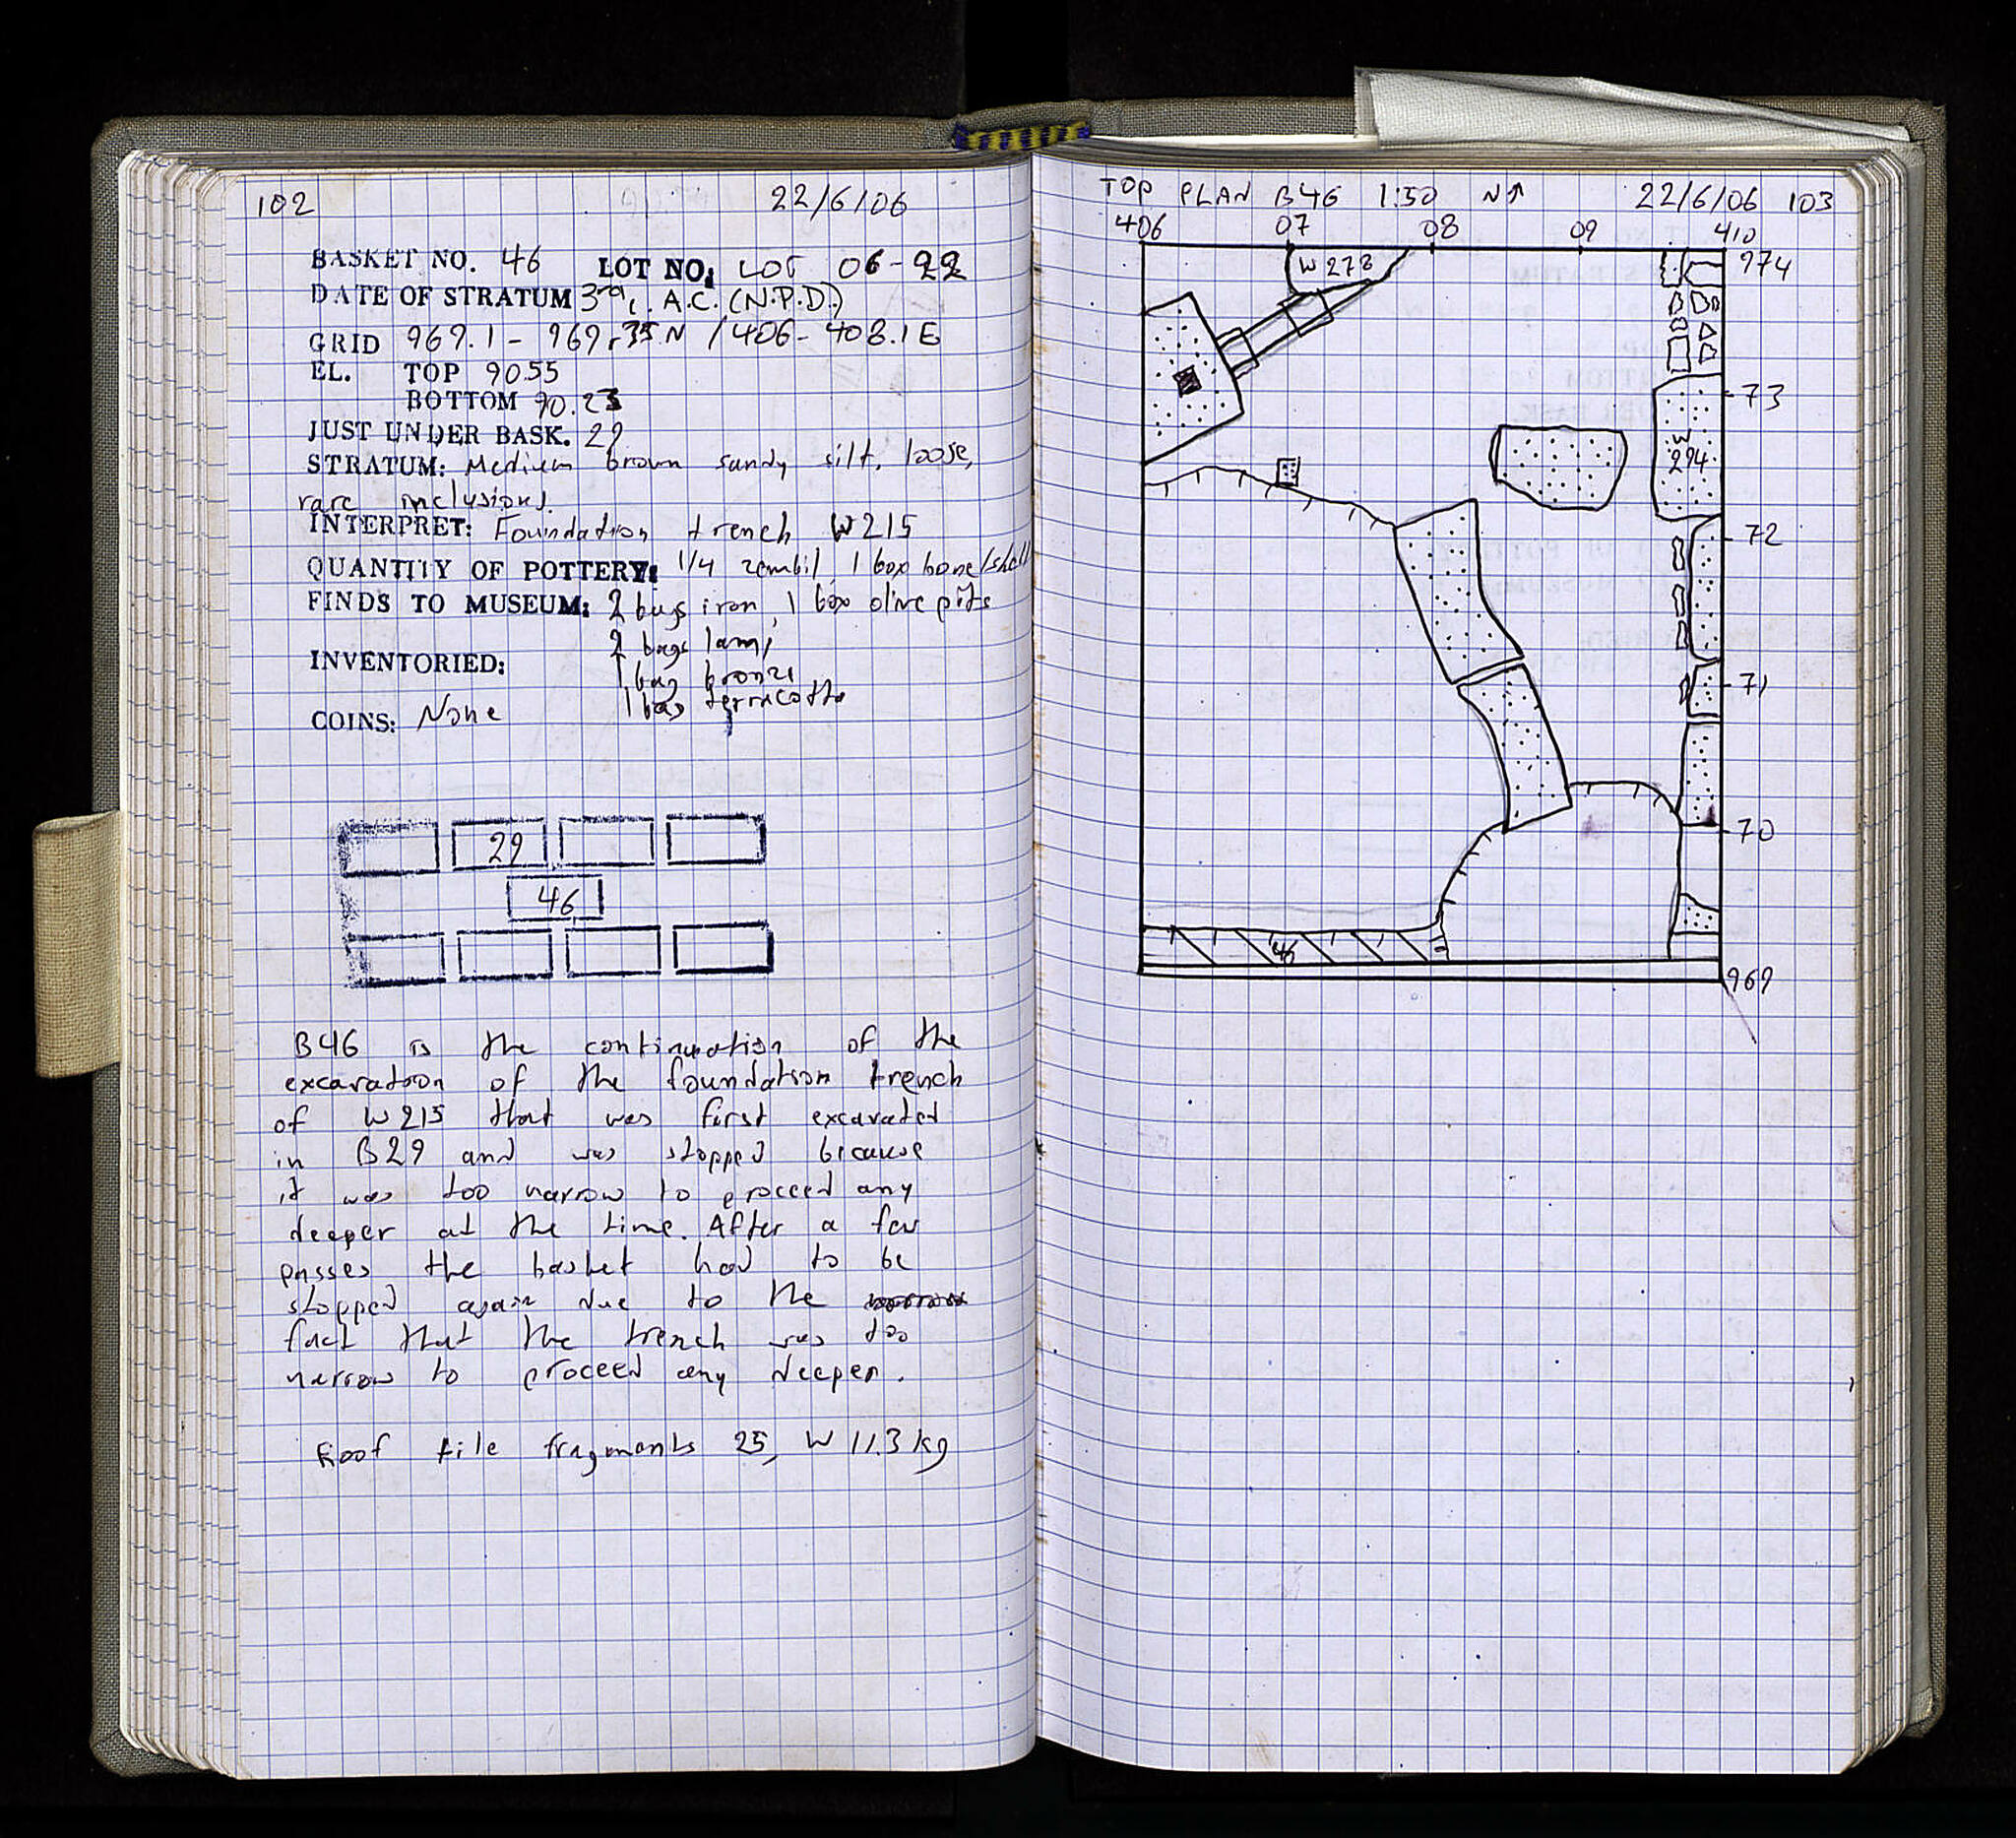 102 22/6/06
BASKET NO. 46 LOT NO: LOT 06-22
DATE OF STRATUM 3rd c. A.C. (N.P.D.)
GRID 969.1 - 969.35 N / 406 - 408.1 E
EL. TOP 90.55
BOTTOM 90.23
JUST UNDER BASK. 29
STRATUM: Medium brown sandy silt, loose,
rare inclusions.
INTERPRET: Foundation trench W215
QUANTITY OF POTTERY: 1/4 zembil, 1 box bone/shell
FINDS TO MUSEUM: 2 bags iron, 1 box olive pits
2 bags lamp
INVENTORIED:
1 bag bronze
1 bag terracotta
COINS: None
29
46
B46 is the continuation of the
excavation of the foundation trench
of W215 that was first excavated
in B29 and was stopped because
it was too narrow to proceed any
deeper at the time. After a few
passes the basket had to be
stopped again due to the
fact that the trench was too
narrow to proceed any deeper.
Roof tile fragments 25, W 11.3 kg
TOP PLAN B46 1:50 N↑ 22/6/06 103
406 07 08 09 410
W 278
974
73
W
294
72
71
70
46
969